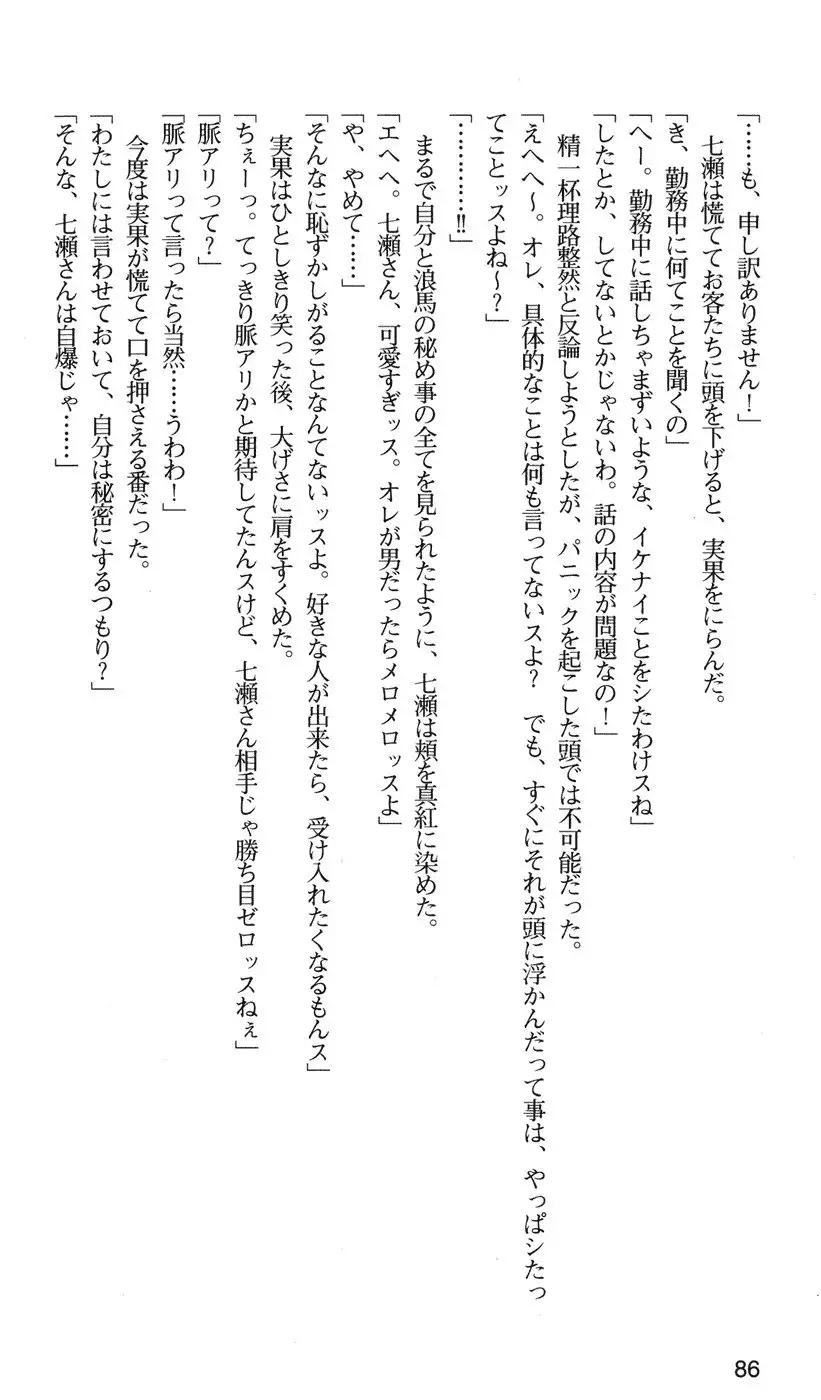 「……も、申し訳ありません！」
七瀬は慌ててお客たちに頭を下げると、実果をにらんだ。
「き、勤務中に何てことを聞くの」
「へー。勤務中に話しちゃまずいような、イケナイことをシたわけスね」
「したとか、してないとかじゃないわ。話の内容が問題なの！」
精一杯理路整然と反論しようとしたが、パニックを起こした頭では不可能だった。
「えへへ〜。オレ、具体的なことは何も言ってないスよ？　でも、すぐにそれが頭に浮かんだって事は、やっぱシたっ
てことッスよね〜？」
「…………!!」
まるで自分と浪馬の秘め事の全てを見られたように、七瀬は頬を真紅に染めた。
「エへへ。七瀬さん、可愛すぎッス。オレが男だったらメロメロッスよ」
「や、やめて……」
「そんなに恥ずかしがることなんてないッスよ。好きな人が出来たら、受け入れたくなるもんス」
実果はひとしきり笑った後、大げさに肩をすくめた。
「ちぇーっ。てっきり脈アリかと期待してたんスけど、七瀬さん相手じゃ勝ち目ゼロッスねぇ」
「脈アリって？」
「脈アリって言ったら当然……うわわ！」
今度は実果が慌てて口を押さえる番だった。
「わたしには言わせておいて、自分は秘密にするつもり？」
「そんな、七瀬さんは自爆じゃ……」
86